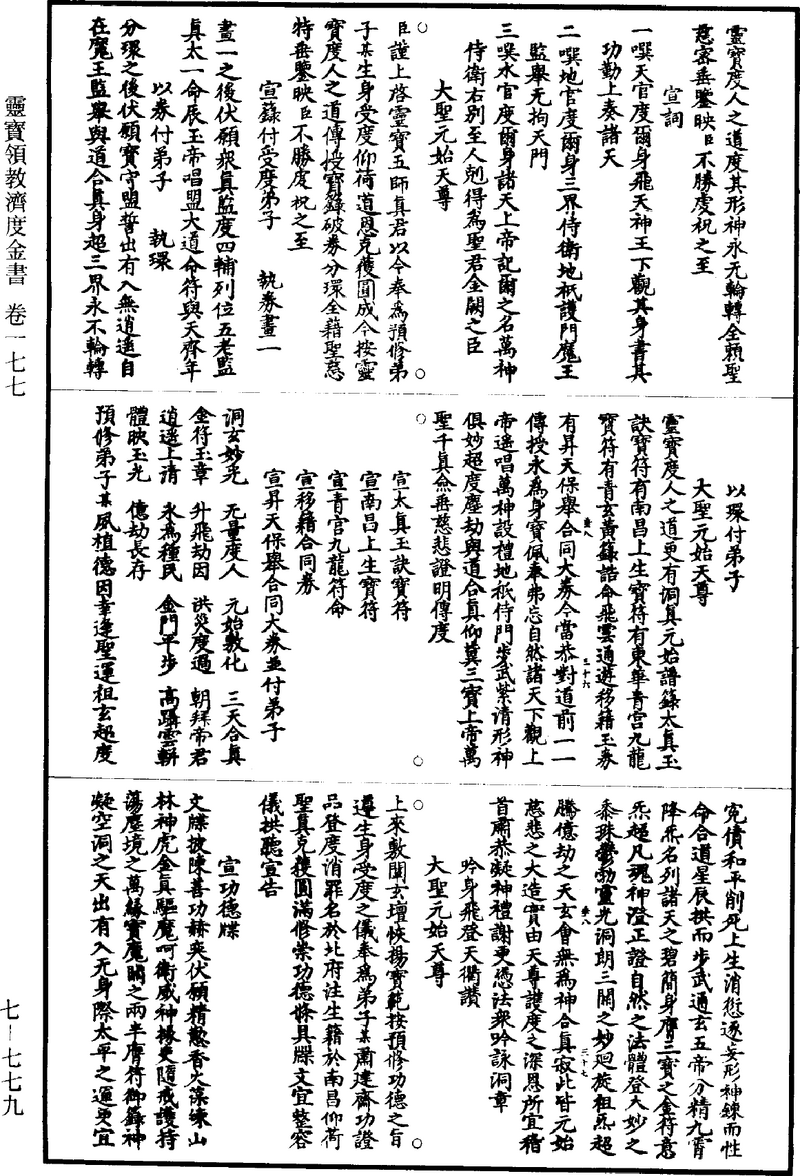 靈寶度人之道度其形神永无輪轉全賴聖
慈密垂鑒映臣不勝虔祝之至
宣詞
一噀天官度爾身飛天神王下觀其身書其
功勤上奏諸天
二噀地官度爾身三界侍衛地祇護門魔王
監舉无拘天門
三噀水官度爾身諸天上帝記爾之名萬神
侍衛右別至人剋得為聖君金闕之臣
大聖元始天尊
臣謹上啓靈寶五師真君以今奉為預修弟
子某生身受度仰荷道恩克獲圓成今按靈
寶度人之道傳授寶籙破券分環全藉聖慈
特垂鑒映臣不勝虔祝之至
宣籙付受度弟子 執券畫一
畫一之後伏願眾真監度四輔列位五老監
真太一命辰玉帝唱盟大道命符與天齊年
以券付弟子 執環
分環之後伏願寶守盟誓出有入無逍遙自
在魔王監舉與道合真身超三界永不輪轉
以環付弟子
大聖元始天尊
靈寶度人之道更有洞真元始譜籙太真玉
訣寶符有南昌上生寶符有東華青宮九龍
寶符有青玄黃籙誥命飛雲通遊移籍玉券
三十六
有昇天保舉合同大券今當恭對道前一一
傳授永為身寶佩奉弗忘自然諸天下觀上
帝遙唱萬神設禮地祇侍門步武紫清形神
俱妙超度塵劫與道合真仰冀三寶上帝萬
聖千真僉垂慈悲證明傳度
宣太真玉訣寶符
宣南昌上生寶符
宣青宮九龍符命
宣移籍合同券
宣昇天保舉合同大券並付弟子
洞玄妙光 无量度人 元始敷化 三天合真
金符玉章 升飛劫因 洪災度過 朝拜帝君
逍遙上清 永為種民 金門平步 高躋雲軿
體映玉光 億劫長存
預修弟子某夙植德因幸逢聖運祖玄超度
冤債和平削死上生消愆逐妄形神鍊而性
命合道星辰拱而步武通玄五帝分精九霄
降炁名列諸天之碧簡身膺三寶之金符意
炁超凡魂神澄正證自然之法體登大妙之
黍珠鬱勃靈光洞朗三關之妙迴旋祖炁超
騰億劫之天玄會無為神合真寂此皆元始
三十七
慈悲之大造實由天尊護度之深恩所宜稽
首肅恭凝神禮謝更憑法眾吟詠洞章
吟身飛登天衢讚
大聖元始天尊
上來敷闡玄壇恢揚寶範按預修功德之旨
遵生身受度之儀奉為弟子某肅建齋功證
品登度消罪名於北府注生籍於南昌仰荷
聖真克獲圓滿修崇功德條具牒文宜整容
儀拱聽宣告
宣功德牒
文牒披陳善功赫奕伏願精懃香火藻練山
林神虎金真驅魔呵衛威神掾吏隨戒護持
蕩塵境之萬緣寶魔闢之兩半膺符御籙神
凝空洞之天出有入无身際太平之運更宜
靈寶領教濟度金書 卷一七七
七－七七九